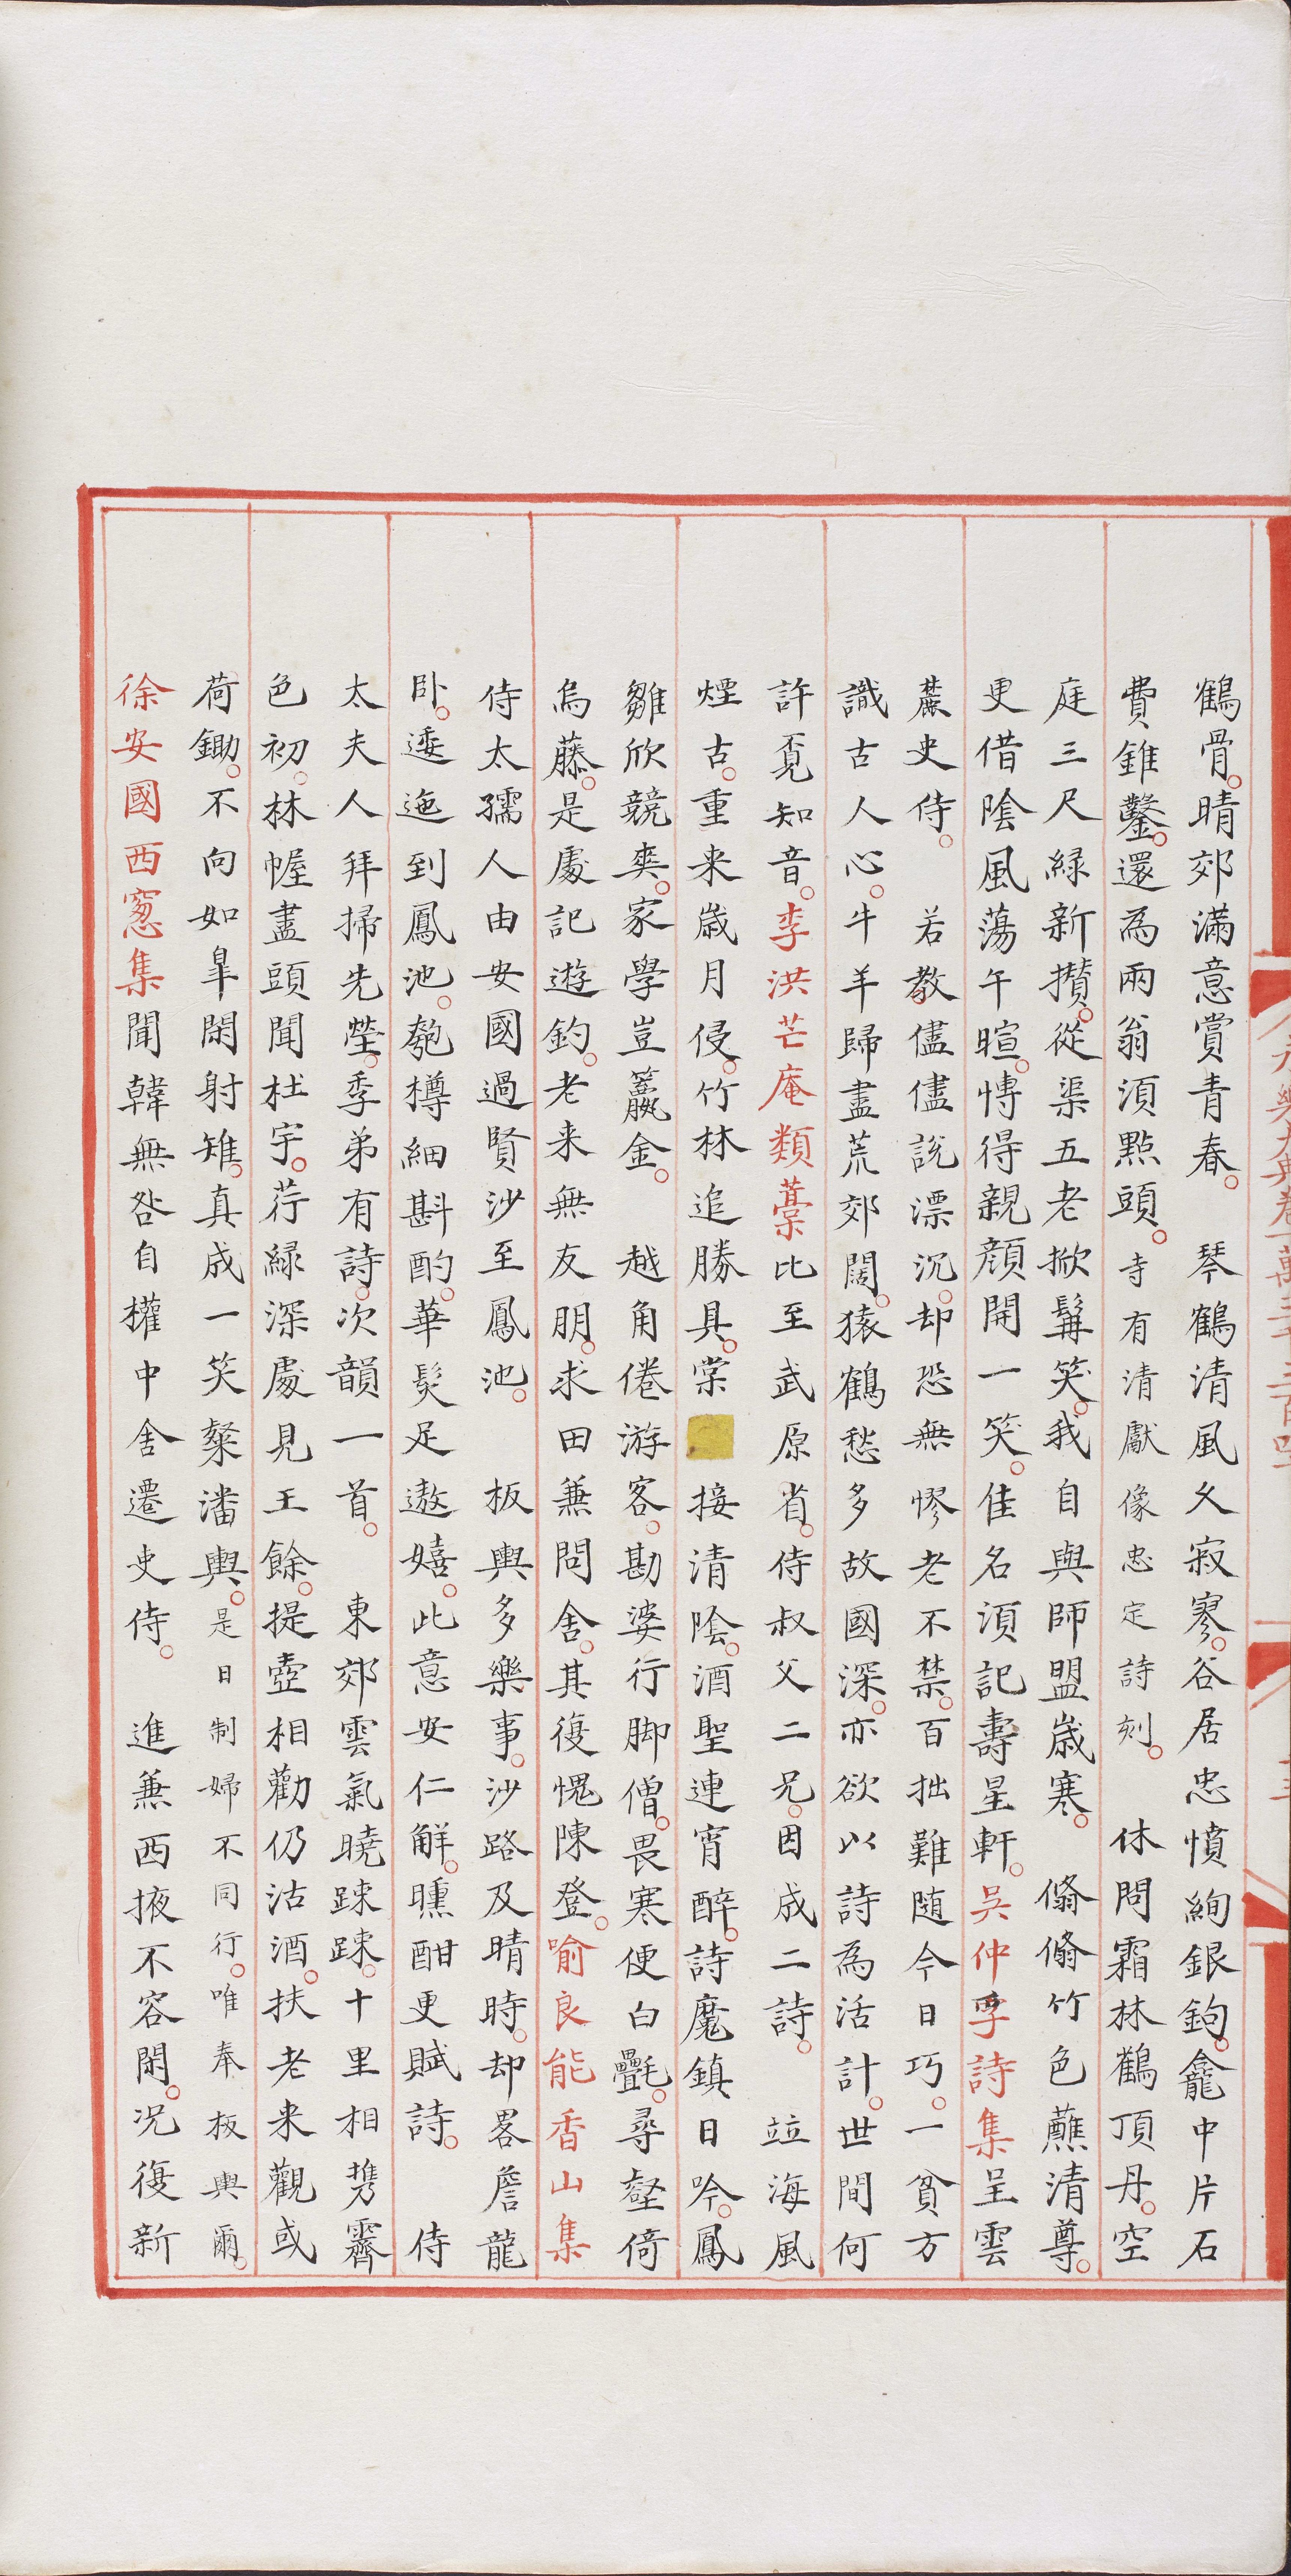 鶴骨。晴郊滿意賞青春。 琴鶴清風久寂寥。谷居忠憤絢銀鉤。龕中片石
費錐鑿。還為兩翁須點頭。寺有清獻像忠定詩刻。 休問霜林鶴頂丹。空
庭三尺綠新攢。從渠五老掀髯笑。我自與師盟歲寒。 翛翛竹色蘸清尊。
更借陰風蕩午暄。慱得親顏開一笑。佳名須記壽星軒。吳仲孚詩集呈雲
麓史侍。 若教儘儘說漂沉。却恐無憀老不禁。百拙難随今日巧。一貧方
識古人心。牛羊歸盡荒郊闊。猿鶴愁多故國深。亦欲以詩為活計。世間何
許覔知音。李洪芒庵類藁比至武原省。侍叔父二兄。因成二詩。 竝海風
煙古。重来歲月侵。竹林追勝具。棠 接清陰。酒聖連宵醉。詩魔鎮日吟。鳳
雛欣競奕。家學豈籯金。 越角倦游客。勘婆行脚僧。畏寒便白氎。尋壑倚
烏藤。是處記遊釣。老来無友朋。求田兼問舍。其復愧陳登。喻良能香山集
侍太孺人由安國過賢沙至鳳池。 板輿多樂事。沙路及晴時。却畧詹龍
卧。逶迤到鳳池。匏樽細斟酌。華髮足遨嬉。此意安仁解。曛酣更賦詩。 侍
太夫人拜掃先塋。季弟有詩。次韻一首。 東郊雲氣曉踈踈。十里相攜霽
色初。林幄盡頭聞杜宇。荇綠深處見王餘。提壺相勸仍沽酒。扶老来觀或
荷鋤。不向如皐閑射雉。真成一笑粲潘輿。是日制婦不同行。唯奉板輿爾。
徐安國西窻集聞韓無咎自權中舍遷吏侍。 進兼西掖不容閑。况復新